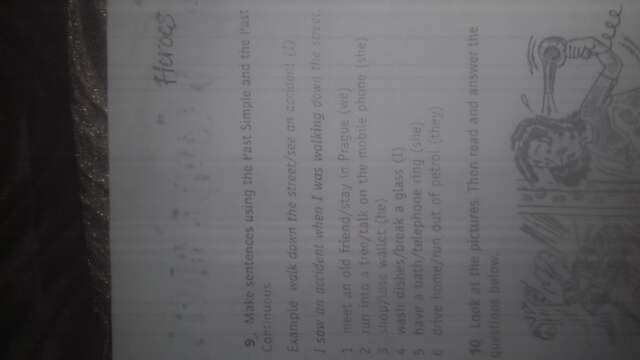 Heroes
9 Make sentences using the Past Simple and the Past
Continuous.
Example walk down the street/see an accident (I)
I saw an accident when I was walking down the street.
1 meet an old friend/stay in Prague (we)
2 run into a tree/talk on the mobile phone (she)
3 shop/lose wallet (he)
4 wash dishes/break a glass (I)
5 have a bath/telephone ring (she)
6 drive home/run out of petrol (they)
10 Look at the pictures. Then read and answer the
questions below.